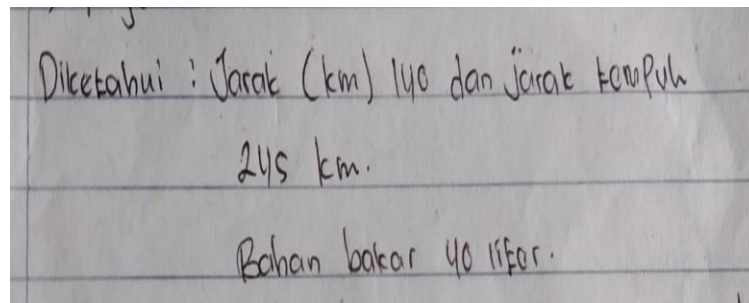 Diketahui : Jarak (km) 140 dan jarak tempuh
245 km.
Bahan bakar 40 liter.